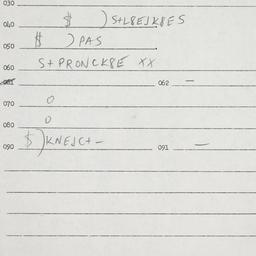 030
040 $ ) S+L8EJK8ES
050 $ ) PAS
060 S+PRONCK8E XX
062 —
070 0
080 0
090 $ ) KNEJC+— 091 —